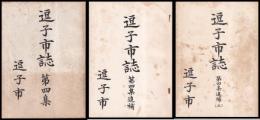 逗子市誌
第四集
逗子市
逗子市誌
第四集追補
逗子市
逗子市誌
第四集追補(二)
逗子市